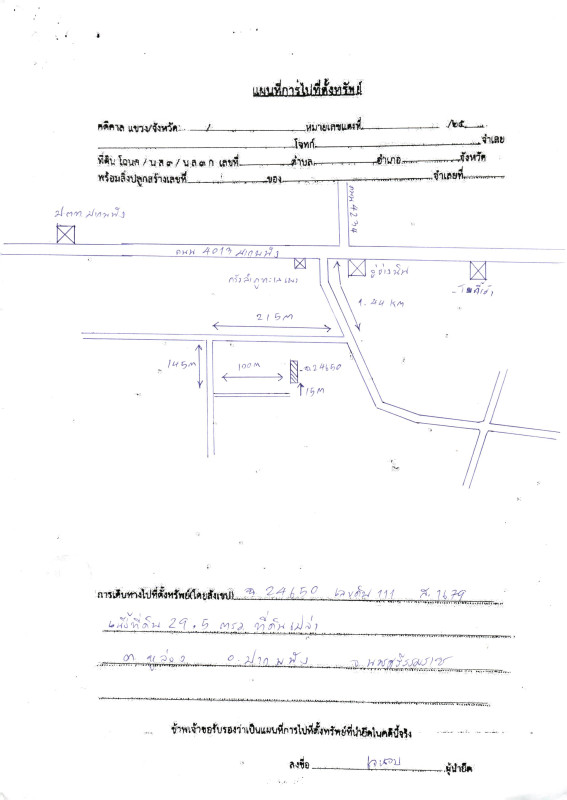 แผนที่การไปที่ตั้งทรัพย์
คดีศาล แขวง/จังหวัด / หมายเลขแดงที่ /๒๕
โจทก์ จำเลย
ที่ดิน โฉนด / น.ส.๓ / น.ส.๓ ก. เลขที่ ตำบล อำเภอ จังหวัด
พร้อมสิ่งปลูกสร้างเลขที่ ของ จำเลยที่
ถนน 4234
ถนน 4013
1.44 KM
215 M
145 M
100 M
ฉ.24650
15 M
การเดินทางไปที่ตั้งทรัพย์(โดยสังเขป) ฉ. 24650 เลขดิน 111 ส. 1679
เนื้อที่ดิน 29.5 ตรว ที่ดินเปล่า
อ. ปากพนัง จ. นครศรีธรรมราช
ข้าพเจ้าขอรับรองว่าเป็นแผนที่การไปที่ตั้งทรัพย์ที่นำยึดในคดีนี้จริง
ลงชื่อ ผู้นำยึด